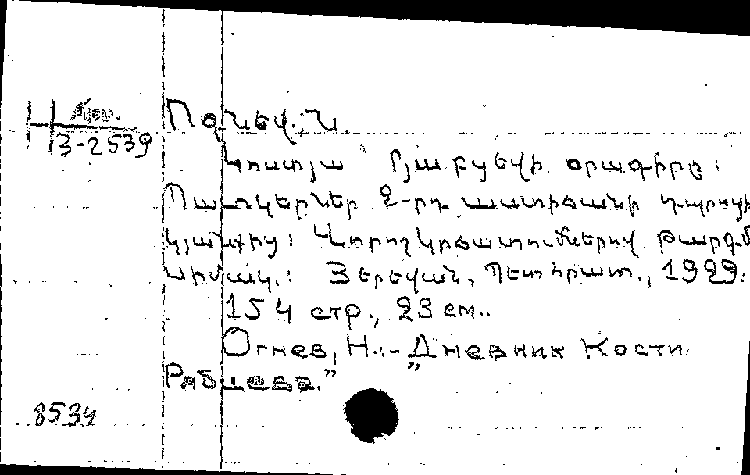 Հ Արմ.
3-2539
Ոգնեվ, Ն.
Կոստյա Ռյաբցեվի օրագիրը:
Պատկերներ 2-րդ աստիճանի դպրոցի
կյանքից: Վորոշ կրճատումներով թարգմ.
Յերեվան, Պետհրատ., 1929.
154 стр., 23 см..
Огнев, Н.. - „Дневник Кости
Рябцева."
8534